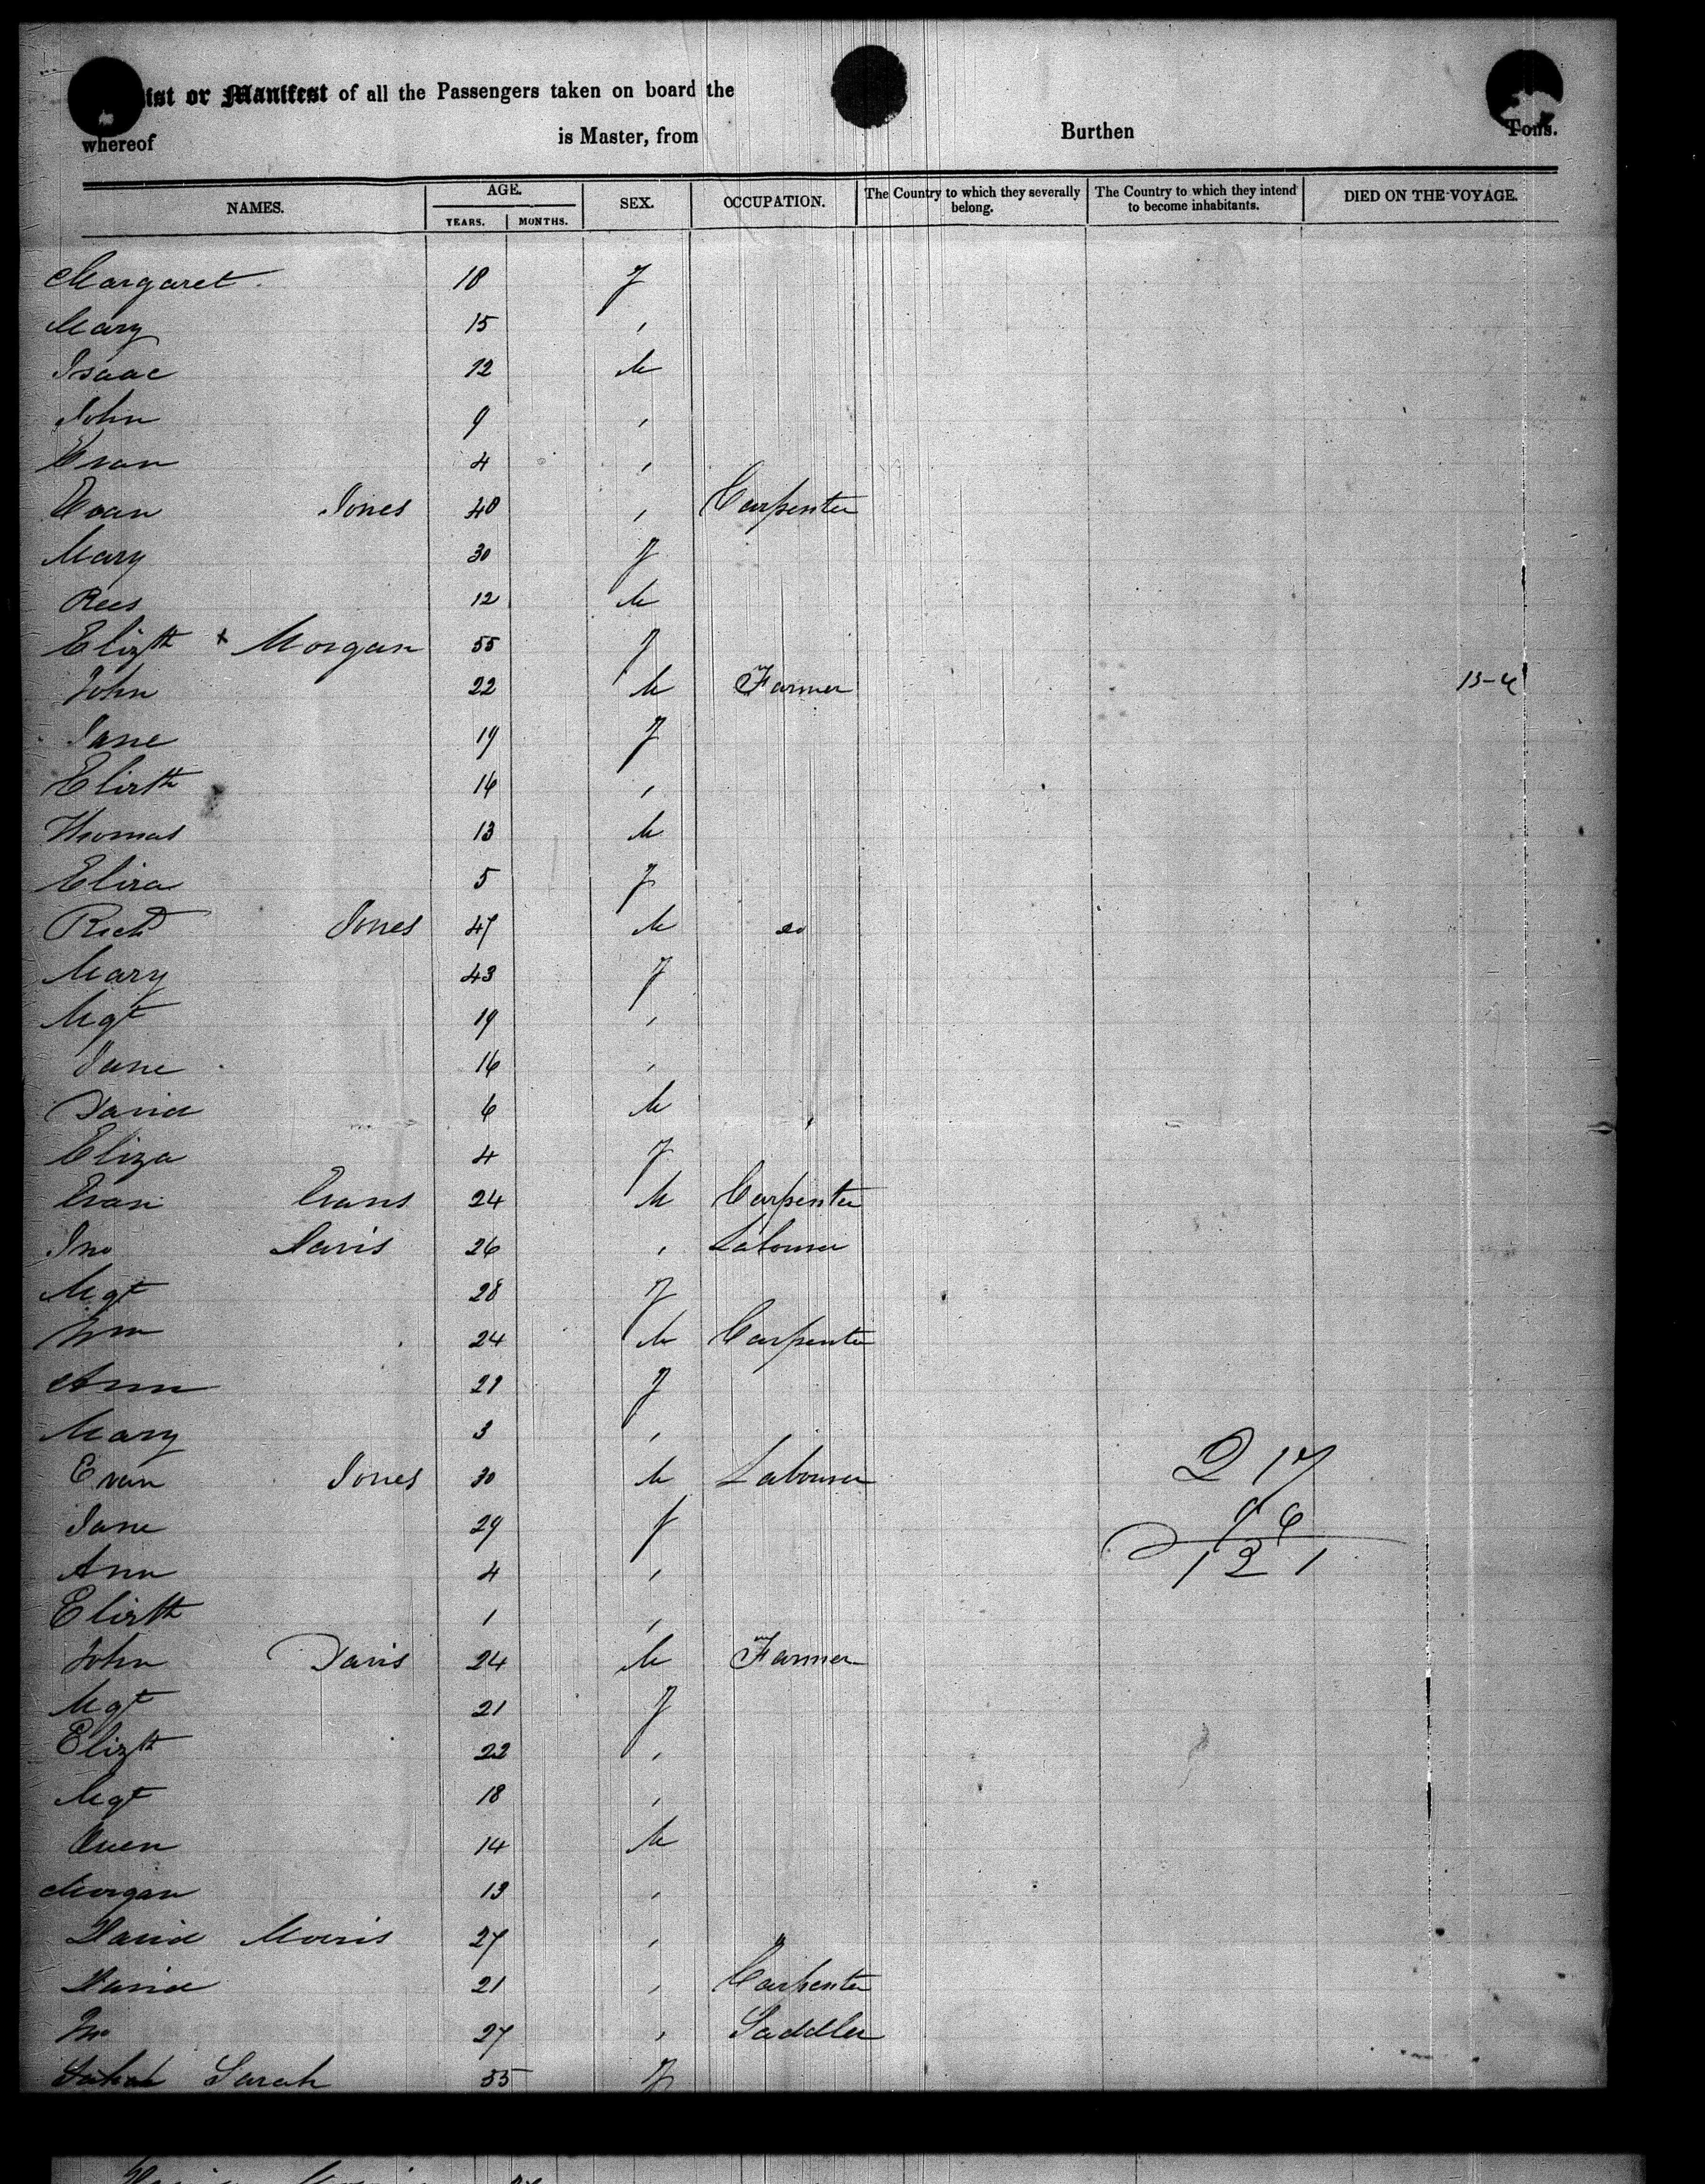 ist or Manifest of all the Passengers taken on board the
whereof is Master, from Burthen Tons.
NAMES. AGE. YEARS. MONTHS. SEX. OCCUPATION. The Country to which they severally belong. The Country to which they intend to become inhabitants. DIED ON THE VOYAGE.
Margaret 18 f
Mary 15 "
Isaac 12 M
John 9 "
Evan 4 "
Evan Jones 40 " Carpenter
Mary 30 f
Rees 12 M
Elizth + Morgan 55 f
John 22 M Farmer
Jane 19 f
Elizth 16 "
Thomas 13 M
Eliza 5 f
Richd Jones 47 M do
Mary 43 f
Mgt 19 "
Jane 16 "
David 6 M
Eliza 4 f
Evan Evans 24 M Carpenter
Jno Davis 26 " Labourer
Mgt 28 f
Wm 24 M Carpenter
Ann 21 f
Mary 3 "
Evan Jones 30 M Labourer 217
Jane 29 f 96
Ann 4 " 121
Elizth 1 "
John Davis 24 M Farmer
Mgt 21 f
Elizth 22 "
Mgt 18 "
Owen 14 M
Morgan 13 "
David Morris 27 " "
David 21 " Carpenter
Jno 27 " Saddler
Sarah 55 f